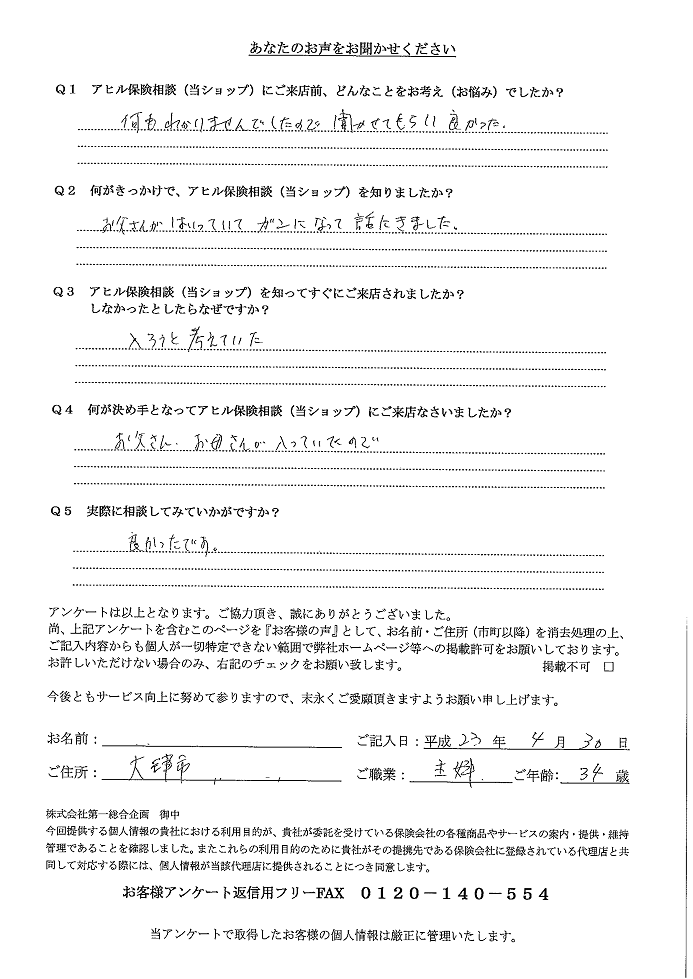 あなたのお声をお聞かせください
Q1 アヒル保険相談（当ショップ）にご来店前、どんなことをお考え（お悩み）でしたか？
何もわかりませんでしたので 聞かせてもらい 良かった.
Q2 何がきっかけで、アヒル保険相談（当ショップ）を知りましたか？
お父さんが はいっていて ガンになって 話にきました。
Q3 アヒル保険相談（当ショップ）を知ってすぐにご来店されましたか？
しなかったとしたらなぜですか？
入ろうと 考えていた
Q4 何が決め手となってアヒル保険相談（当ショップ）にご来店なさいましたか？
お父さん、お母さんが 入っていたので
Q5 実際に相談してみていかがですか？
良かったです。
アンケートは以上となります。ご協力頂き、誠にありがとうございました。
尚、上記アンケートを含むこのページを『お客様の声』として、お名前・ご住所（市町以降）を消去処理の上、
ご記入内容からも個人が一切特定できない範囲で弊社ホームページ等への掲載許可をお願いしております。
お許しいただけない場合のみ、右記のチェックをお願い致します。 掲載不可 □
今後ともサービス向上に努めて参りますので、末永くご愛願頂きますようお願い申し上げます。
お名前： ご記入日：平成 23 年 4 月 30 日
ご住所： 大津市 ご職業： 主婦 ご年齢： 34 歳
株式会社第一総合企画 御中
今回提供する個人情報の貴社における利用目的が、貴社が委託を受けている保険会社の各種商品やサービスの案内・提供・維持
管理であることを確認しました。またこれらの利用目的のために貴社がその提携先である保険会社に登録されている代理店と共
同して対応する際には、個人情報が当該代理店に提供されることにつき同意します。
お客様アンケート返信用フリーFAX 0120－140－554
当アンケートで取得したお客様の個人情報は厳正に管理いたします。